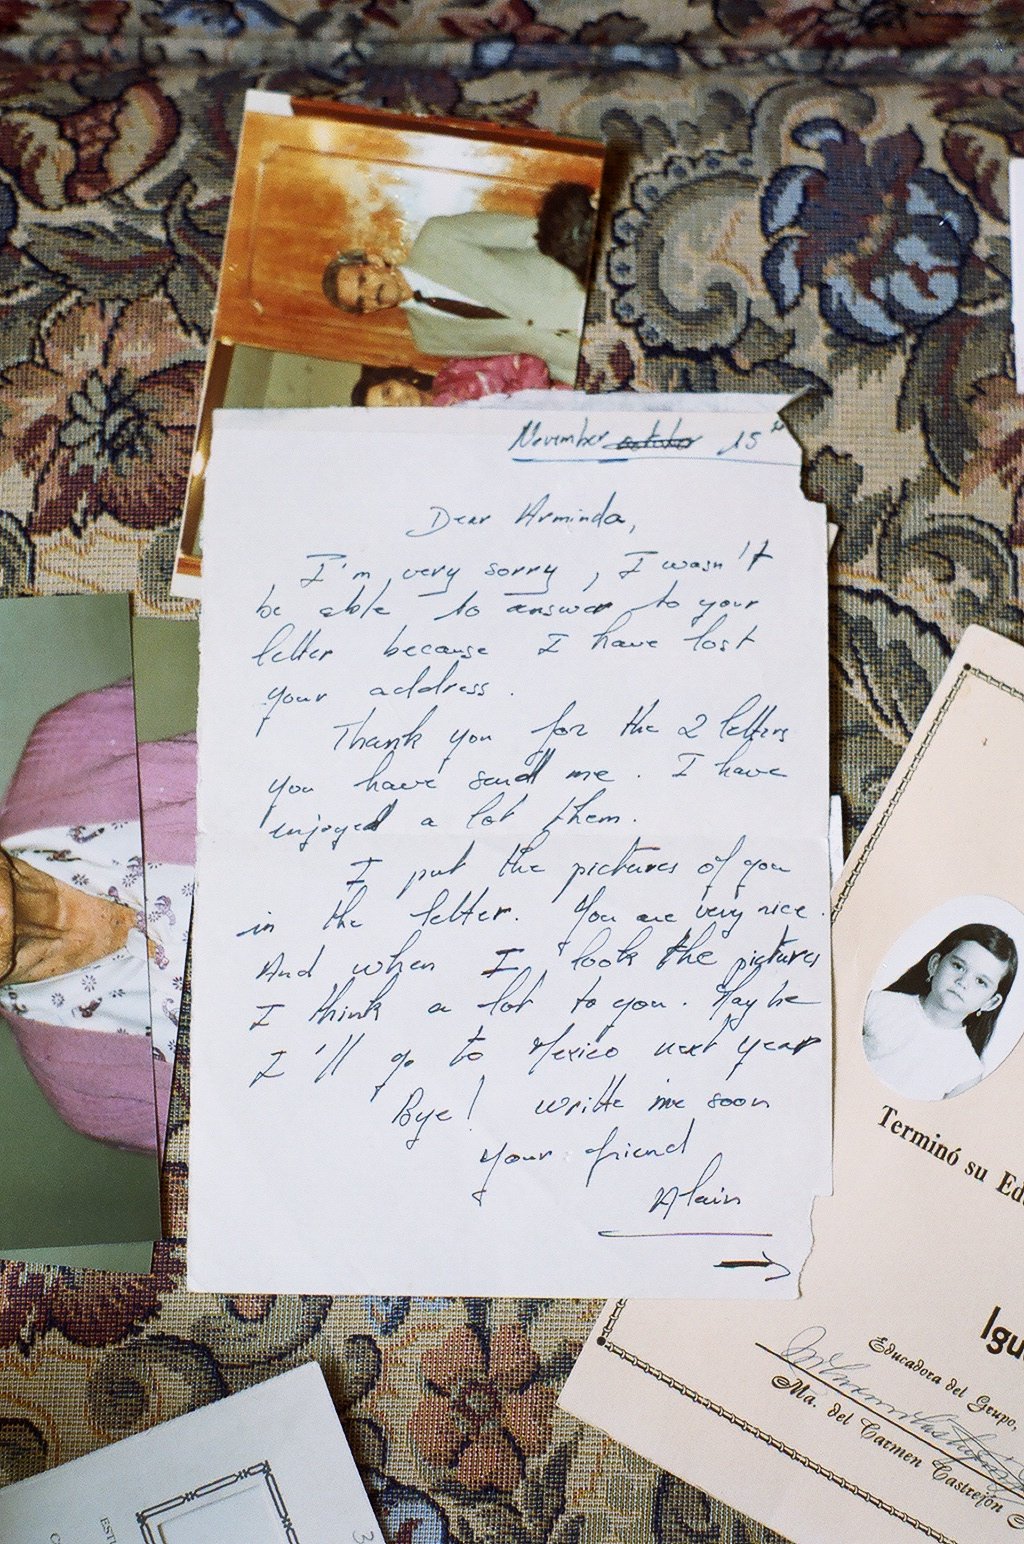 November october 15th
Dear Arminda,
I'm very sorry, I wasn't
be able to answer to your
letter because I have lost
your address.
Thank you for the 2 letters
you have send me. I have
enjoyed a lot them.
I put the pictures of you
in the letter. You are very nice.
And when I look the pictures
I think a lot to you. Maybe
I'll go to Mexico next year
Bye! Writte me soon
Your friend
Alain
Terminó su Edu
Igu
Educadora del Grupo,
Ma. del Carmen Castrejón
ESTU
3